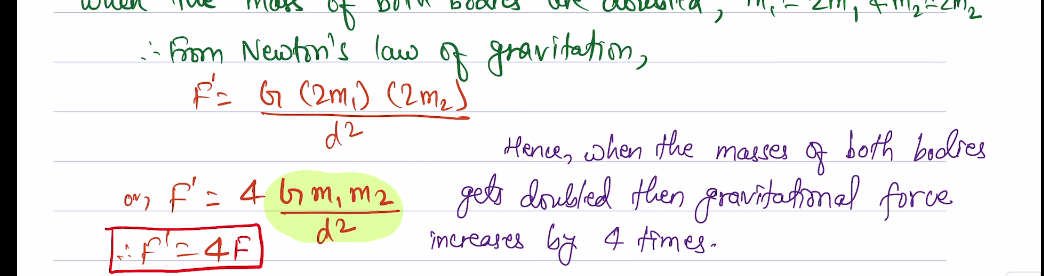 When the mass of both bodies are doubled, m₁' = 2m₁ & m₂' = 2m₂
∴ From Newton's law of gravitation,
F' = G (2m₁) (2m₂)
d²
Hence, when the masses of both bodies
or, F' = 4 G m₁ m₂
d²
gets doubled then gravitational force
∴ F' = 4F
increases by 4 times.